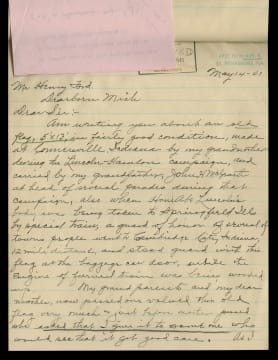 May 14-21
Mr Henry Ford.
Dearborn Mich
Dear Sir:-
Am writing you about an old
flag, 5'x13', in fairly good condition, made
at Connersville Indiana by my grandmother
during the Lincoln-Hamlin Campaign, and
carried by my grandfather, John H
at head of several parades during that
campaign, also when Hon Abe Lincoln's
body was being taken to Springfield Ill
by special train, a guard of honor of several of
towns people went to Cambridge City, Indiana,
12 miles and stood guard with this
flag at the baggage car door, while the
engine of funeral train was being worked
on. My grand parents and my dear
mother, now passed on valued this old
flag very much & just before mother passed
she asked that I give it to some one who
would see that it got good care. As I